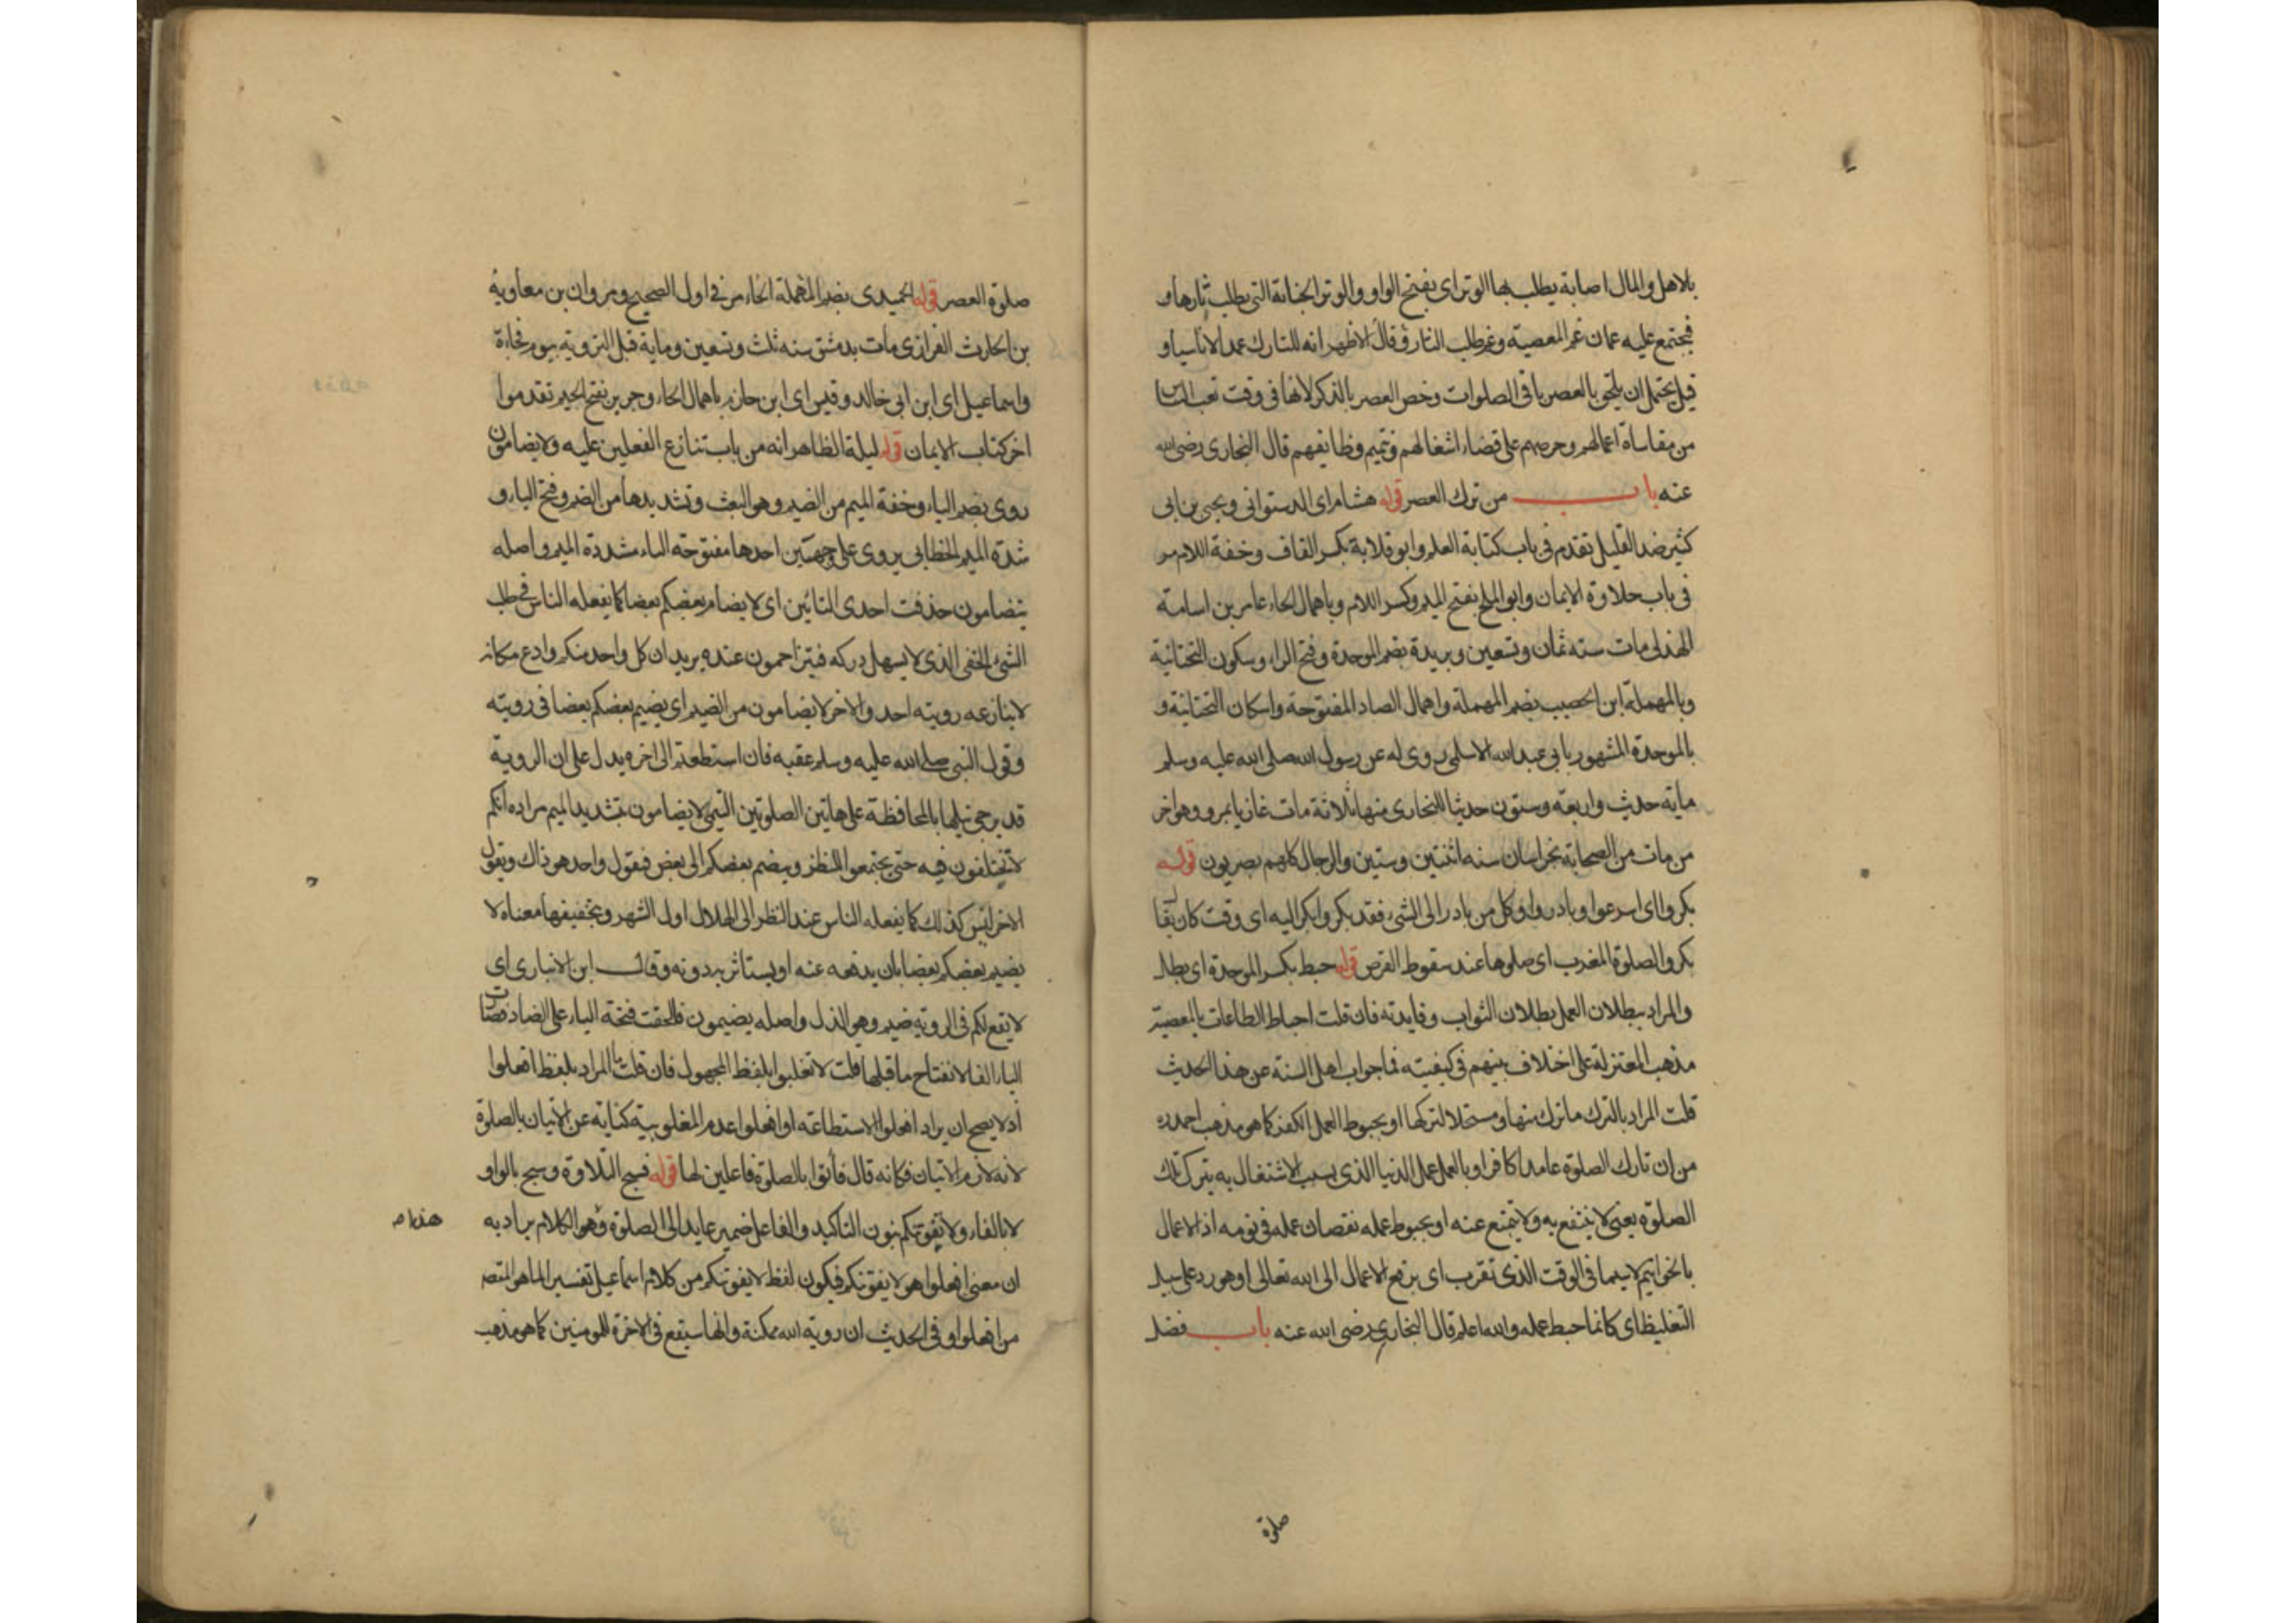 بالاهل والمال اصابة يطلب بها الوتر اى بفتح الواو والوتر الجناية التى يطلب ثارها و
فيجتمع عليه غمان غم المعصية وغم طلب الثار وقال الاظهر انه للتارك عمدا لا ناسيا و
قيل يحتمل ان يلحق بالعصر باقى الصلوات وخص العصر بالذكر لانها فى وقت تعب الناس
من مقاساة اعمالهم وحرصهم على قضاء اشغالهم وتتميم وظائفهم قال البخارى رضى الله
عنه باب من ترك العصر قوله هشام اى الدستوائى ويحيى بن ابى
كثير ضد القليل تقدم فى باب كتابة العلم وابو قلابة بكسر القاف وخفة اللام مر
فى باب حلاوة الايمان وابو المليح بفتح الميم وكسر اللام وباهمال الحاء عامر بن اسامة
الهذلى مات سنه ثمان وتسعين وبريدة بضم الموحدة وفتح الراء وسكون التحتانية
وبالمهملة ابن الحصيب بضم المهملة واهمال الصاد المفتوحة واسكان التحتانية و
بالموحدة المشهور بابى عبد الله الاسلمى روى له عن رسول الله صلى الله عليه وسلم
ماية حديث واربعة وستون حديثا للبخارى منها ثلاثة مات غازيا بمرو وهو اخر
من مات من الصحابة بخراسان سنه اثنتين وستين والرجال كلهم بصريون قوله
بكروا اى اسرعوا وبادروا وكل من بادر الى الشىء فقد بكر وابكر اليه اى وقت كان يقال
بكروا الصلوة المغرب اى صلوها عند سقوط القرص قوله حبط بكسر الموحدة اى بطل
والمراد ببطلان العمل بطلان الثواب وفايدته فان قلت احباط الطاعات بالمعصية
مذهب المعتزلة على اختلاف بينهم فى كيفيته فما جواب اهل السنة عن هذا الحديث
قلت المراد بالترك ما ترك متهاو مستحلا لتركها او بحبوط العمل الكفر كما هو مذهب احمد ره
من ان تارك الصلوة عامدا كافر او بالعمل عمل الدنيا الذى بسبب الاشتغال به يترك تلك
الصلوة يعنى لا ينتفع به ولا يتمتع عنه او بحبوط عمله نقصان عمله فى يومه اذ الاعمال
بالخواتيم لا سيما فى الوقت الذى تقرب اى يرفع الاعمال الى الله تعالى او هو رد على سبيل
التغليظ اى كانما حبط عمله والله اعلم قال البخارى رضى الله عنه باب فضل
صلوة
صلوة العصر قوله الحميدى بضم المهملة الحاء مر فى اول الصحيح ومروان بن معاوية
بن الحارث الفزارى مات بدمشق سنه ثلث وتسعين وماية قبل التروية بيوم فجاءة
واسماعيل اى ابن ابى خالد وقيس اى ابن حازم باهمال الحاء وجرير بفتح الجيم تقدموا
اخر كتاب الايمان قوله ليلة الظاهر انه من باب تنازع الفعلين عليه ولا يضامون
روى بضم الياء وخفة الميم من الضيم وهو البعث وتشديدها من الضم وفتح الياء و
شدة الميم الخطابى يروى على وجهين احدها مفتوحة الياء مشددة الميم واصله
يتضامون حذفت احدى التائين اى لا يضام بعضكم بعضا كما يفعله الناس فى طلب
الشىء الخفى الذى لا يسهل دركه فيتزاحمون عنده يريد ان كل واحد منكم وادع مكانه
لا ينازعه رويته احد والاخر لا يضامون من الضيم اى يضيم بعضكم بعضا فى رويته
وقول النبى صلى الله عليه وسلم عقبه فان استطعتم الى اخره يدل على ان الروية
قد يرجى نيلها بالمحافظة على هاتين الصلوتين التيمى لا يضامون بتشديد الميم مراده انكم
لا تختلفون فيه حتى يجتمعوا للنظر وينضم بعضكم الى بعض فيقول واحد هو ذاك ويقول
الاخر ليس كذلك كما يفعله الناس عند النظر الى الهلال اول الشهر وبتخفيفها معناه لا
يضيم بعضكم بعضا بان يدفعه عنه او يستاثر به دونه وقال ابن الانبارى اى
لا يقع لكم فى الروية ضيم وهو الذل واصله يضيمون فالحقت فتحة الياء على الضاد فصارت
الياء الفا لانفتاح ما قبلها قلت لا تغلبوا بلفظ المجهول فان قلت ما المراد بلفظ افعلوا
اذ لا يصح ان يراد افعلوا الاستطاعة او افعلوا عدم المغلوبية كناية عن الاتيان بالصلوة
لانه لازم الاتيان فكانه قال فأتوا بالصلوة فاعلين لها قوله فسبح التلاوة وسبح بالواو
لا بالفاء ولا تفوتنكم بنون التاكيد والفاعل ضمير عايد الى الصلوة وهو الكلام يراد به
ان معنى افعلوا هو لا يفوتنكم فيكون لفظ لا يفوتنكم من كلام اسماعيل تفسيرا لما هو المقصود
من افعلوا وفى الحديث ان روية الله ممكنة وانها ستقع فى الاخرة للمومنين كما هو مذهب